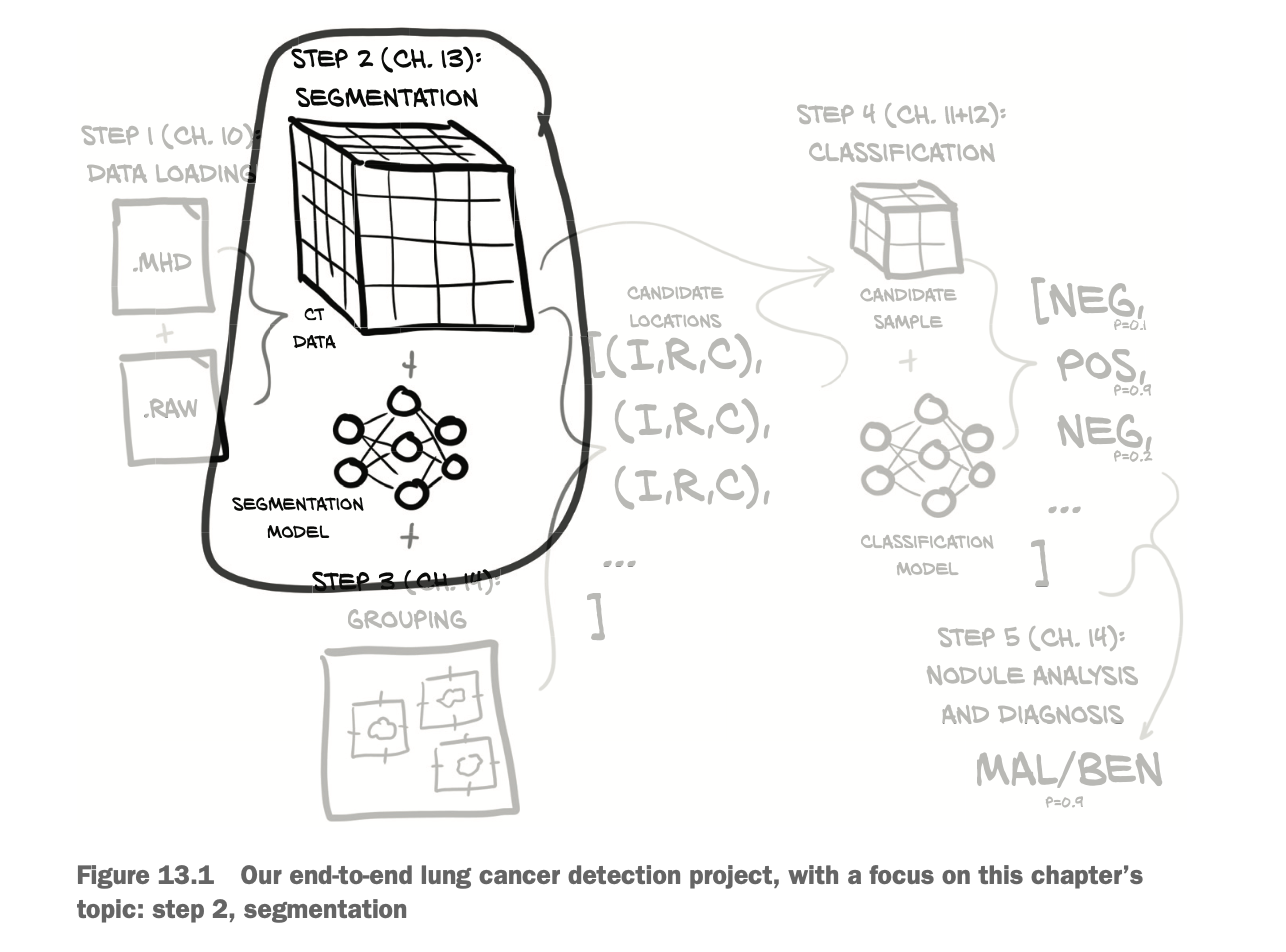 STEP 2 (CH. 13):
SEGMENTATION
STEP 1 (CH. 10):
DATA LOADING
.MHD
+
.RAW
CT
DATA
+
SEGMENTATION
MODEL
+
STEP 3 (CH. 14):
GROUPING
CANDIDATE
LOCATIONS
[(I,R,C),
(I,R,C),
(I,R,C),
...
]
STEP 4 (CH. 11+12):
CLASSIFICATION
CANDIDATE
SAMPLE
+
CLASSIFICATION
MODEL
[NEG,
P=0.1
POS,
P=0.9
NEG,
P=0.2
...
]
STEP 5 (CH. 14):
NODULE ANALYSIS
AND DIAGNOSIS
MAL/BEN
P=0.9
Figure 13.1 Our end-to-end lung cancer detection project, with a focus on this chapter’s
topic: step 2, segmentation